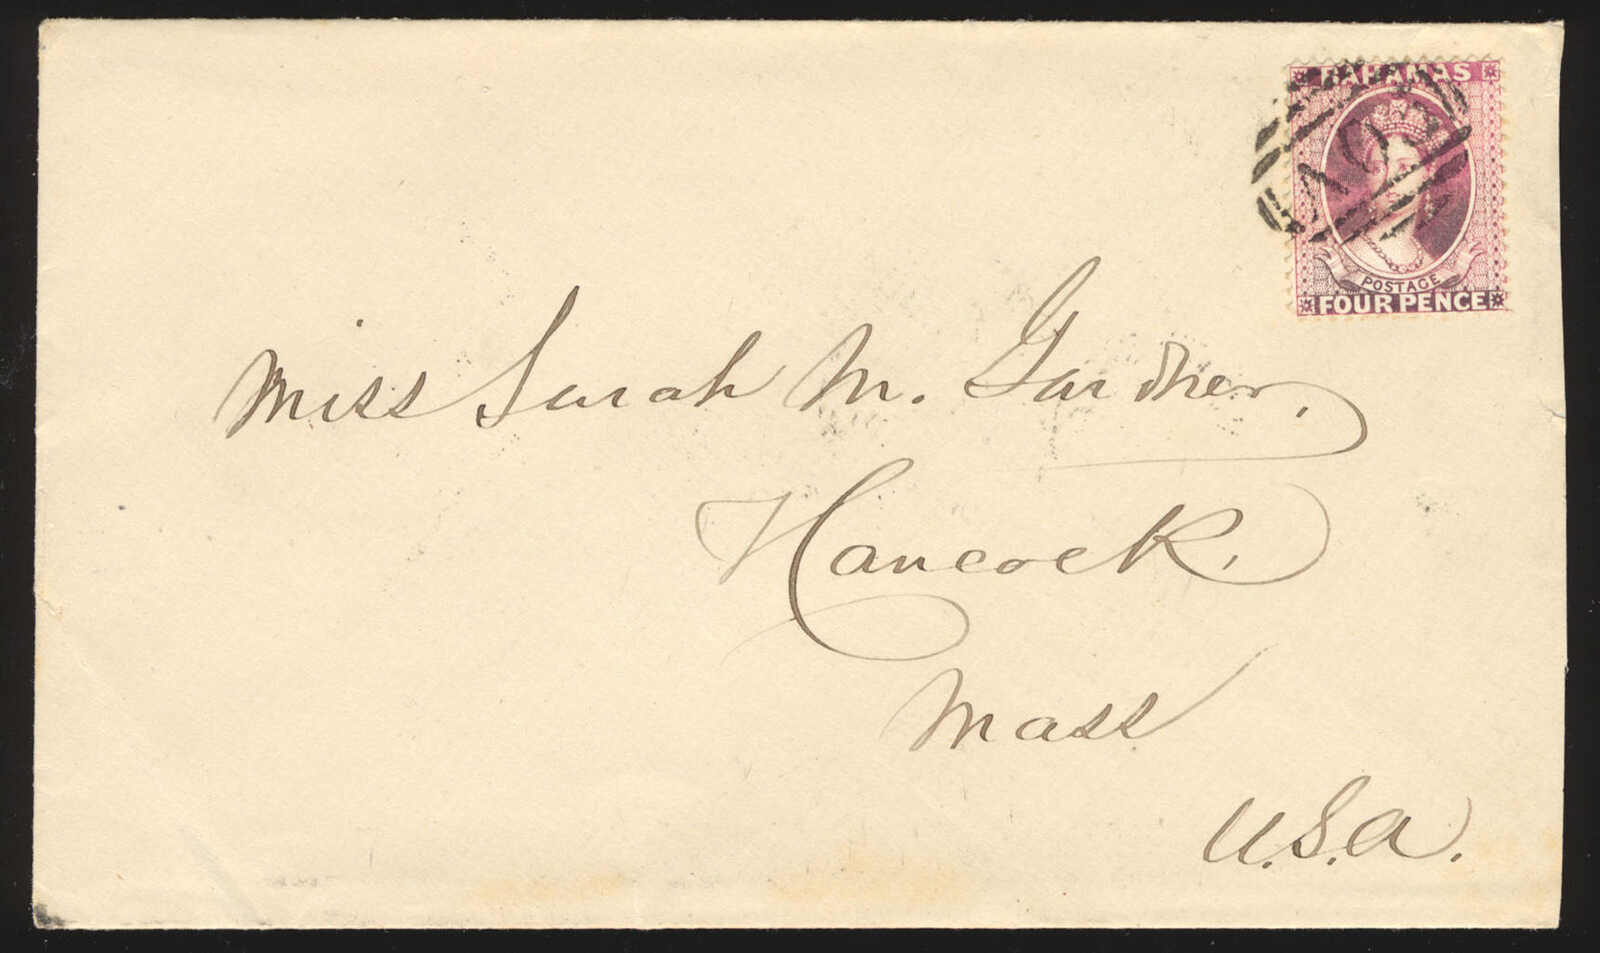 BAHAMAS
POSTAGE
FOUR PENCE
Miss Sarah M. Gardner,
Hancock,
Mass
U.S.A.